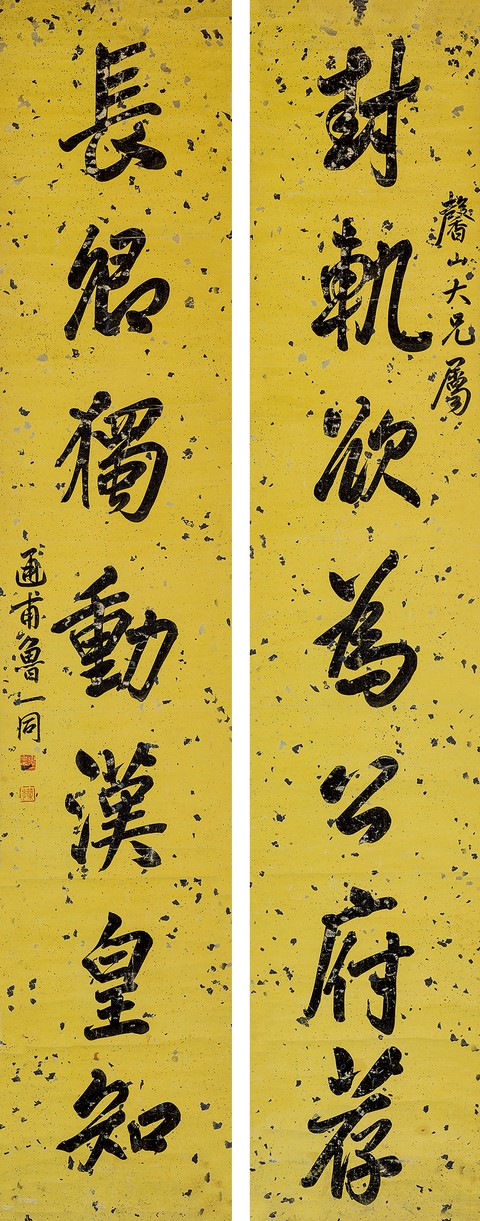 馨山大兄屬
封軌欲為公府荐
長卿獨動漢皇知
通甫魯一同